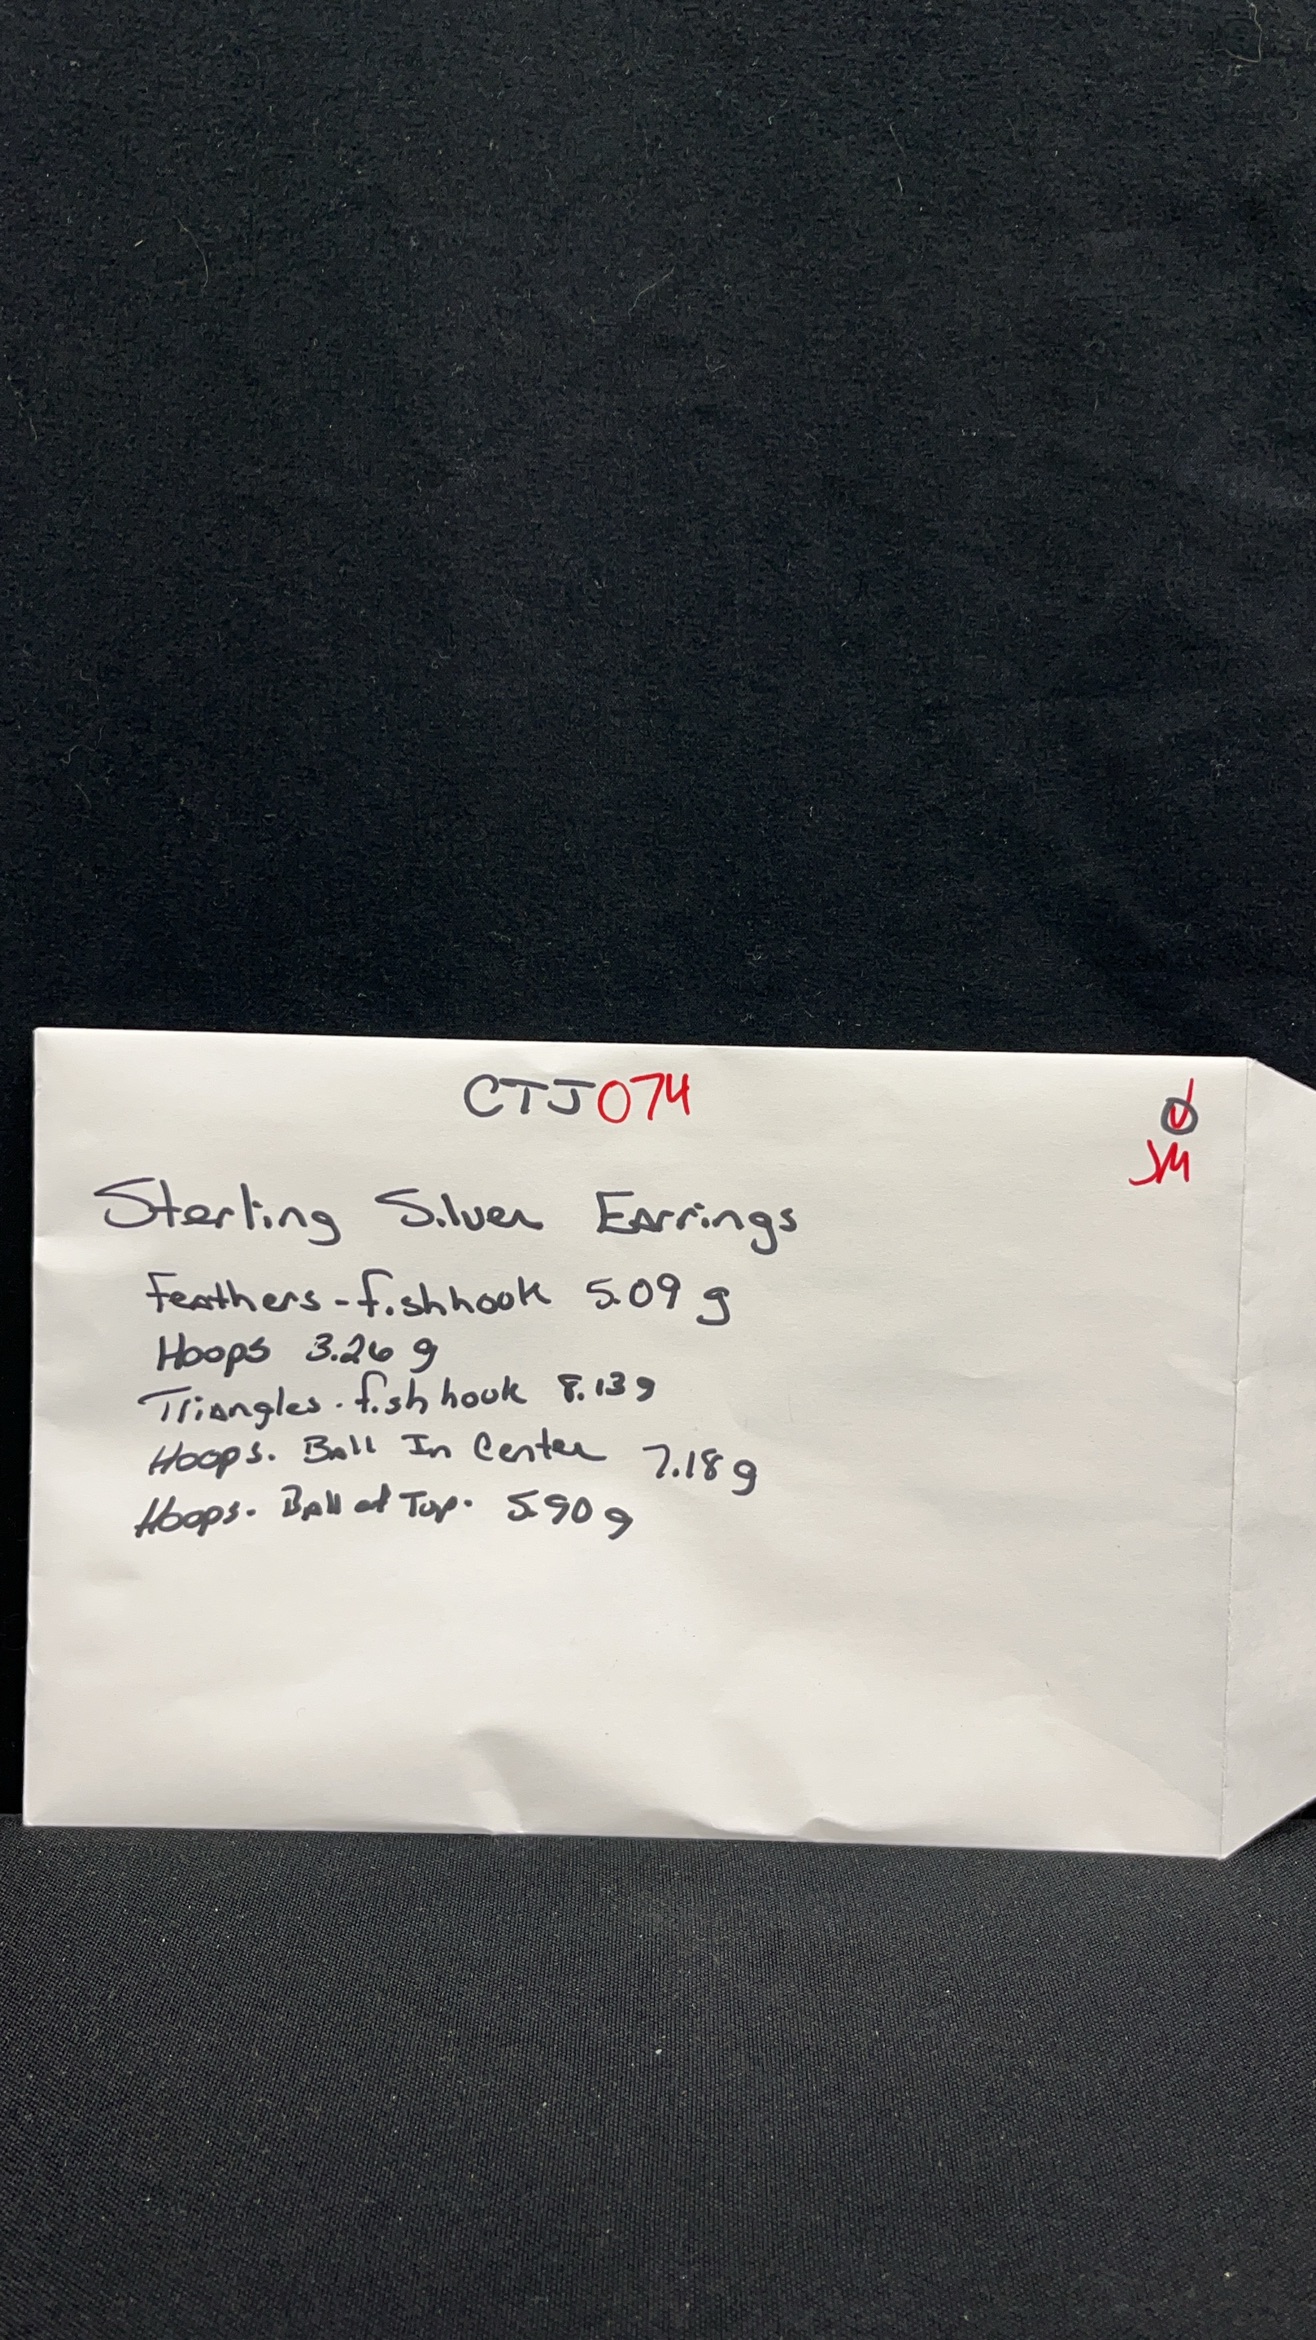 CTJ074
JM
Sterling Silver Earrings
Feathers - fishhook 5.09 g
Hoops 3.26 g
Triangles - fishhook 8.13 g
Hoops - Ball In Center 7.18 g
Hoops - Ball at Top - 5.90 g